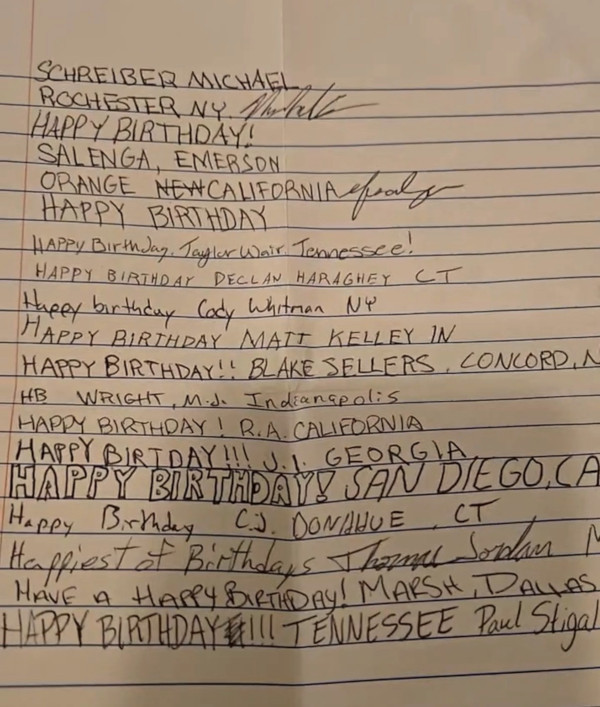 SCHREIBER MICHAEL
ROCHESTER NY.
HAPPY BIRTHDAY!
SALENGA, EMERSON
ORANGE NEW CALIFORNIA
HAPPY BIRTHDAY
HAPPY Birthday. Taylor Wair. Tennessee!
HAPPY BIRTHDAY DECLAN HARAGHEY CT
Happy birthday Cody Whitman NY
HAPPY BIRTHDAY MATT KELLEY IN
HAPPY BIRTHDAY!! BLAKE SELLERS, CONCORD, N
HB WRIGHT, M.J. Indianapolis
HAPPY BIRTHDAY! R.A. CALIFORNIA
HAPPY BIRTDAY!!! J.I. GEORGIA
HAPPY BIRTHDAY! SAN DIEGO, CA
Happy Birthday C.J. DONAHUE, CT
Happiest of Birthdays Thomas Jordan
HAVE A HAPPY BIRTHDAY! MARSH, DALLAS
HAPPY BIRTHDAY!!! TENNESSEE Paul Stigal